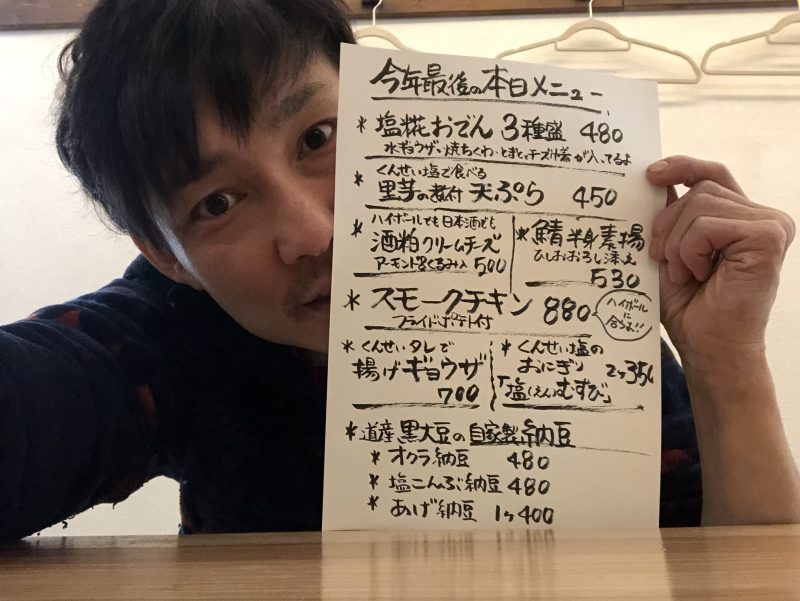 今年最後の本日メニュー
* 塩糀おでん 3種盛 480
水ギョウザ、焼ちくわ・とまととチーズ巾着が入ってるよ
くんせい塩で食べる
* 里芋の煮付 天ぷら 450
ハイボールでも日本酒でも
* 酒粕クリームチーズ
アーモンド&くるみ入 500
* 鯖半身素揚
ひしおおろし添え
530
* スモークチキン 880
フライドポテト付
ハイボールに合うよ!!
* くんせいタレで
揚げギョウザ
700
* くんせい塩の
おにぎり 2ヶ350
「塩(えん)むすび」
* 道産 黒大豆の自家製納豆
* オクラ納豆 480
* 塩こんぶ納豆 480
* あげ納豆 1ヶ400